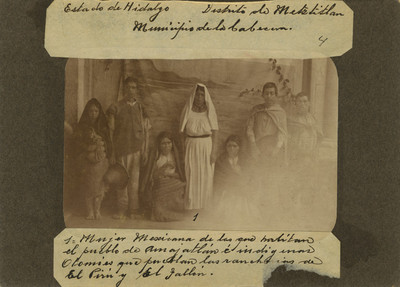 Estado de Hidalgo Distrito de Metztitlan
Municipio de la Cabecera.
4
1
1. Mujer Mexicana de las que habitan
el pueblo de Amajatlán é indigenas
Otomies que pueblan las rancherias de
El Pirú y El Jallin.